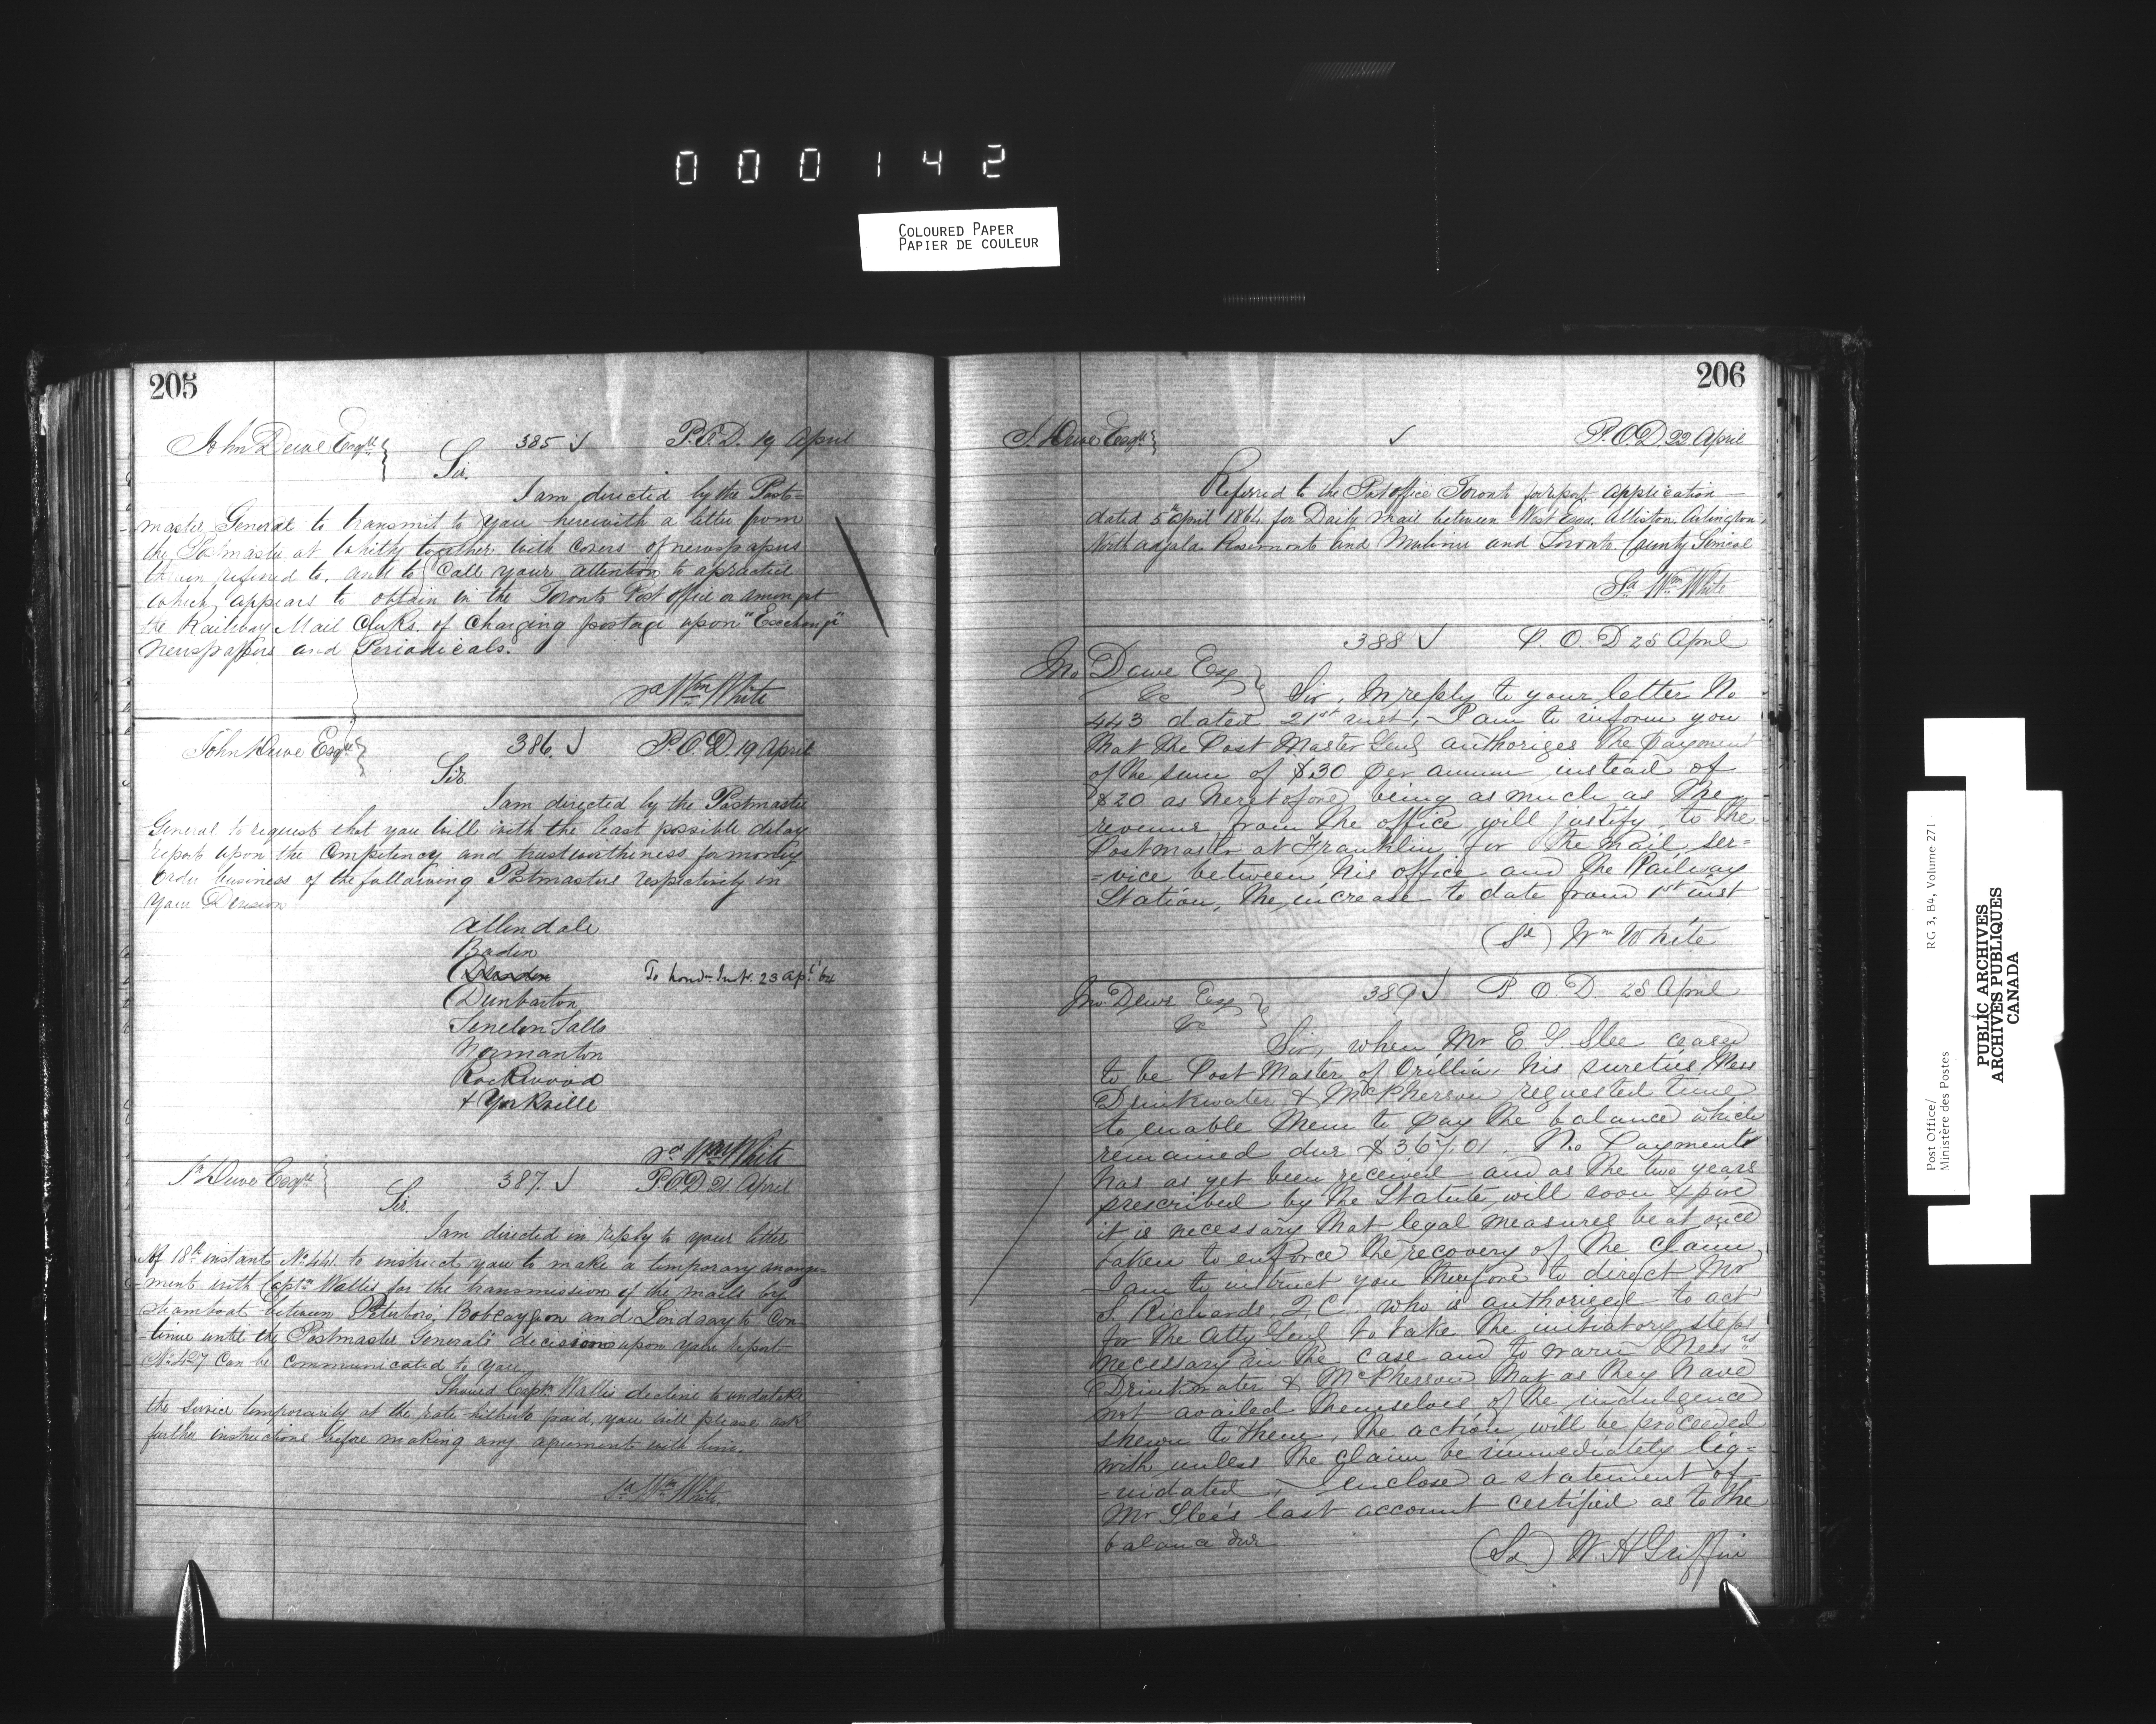 000142
COLOURED PAPER
PAPIER DE COULEUR
205
John Dewe Esqre
385 ✓ P.O.D. 19 April
Sir.
I am directed by the Post=
master General to transmit to you herewith a letter from
the Postmaster at Whitby together with covers of newspapers
therein referred to, and to call your attention to a practice
which appears to obtain in the Toronto Post Office or amongst
the Railway Mail Clerks, of charging postage upon "Exchange"
Newspapers and Periodicals.
sd Wm White
John Dewe Esqre
386. ✓ P.O.D. 19 April
Sir.
I am directed by the Postmaster
General to request that you will with the least possible delay
report upon the competency and trustworthiness for money
order business of the following Postmasters respectively in
your Division
Allendale
Baden
To Lond. Int. 23 Apl. 64
Dunbarton
Fenelon Falls
Normanton
Rockwood
& Yorkville
sd Wm White
Jn Dewe Esqre
387. ✓ P.O.D. 21 April
Sir.
I am directed in reply to your letter
of 18th instant, No 441. to instruct you to make a temporary arrange-
-ment with Captn Wallis for the transmission of the mails by
steamboat between Peterboro, Bobcaygeon and Lindsay to con
-tinue until the Postmaster General's decision upon your report
No 427 can be communicated to you.
Should Captn Wallis decline to undertake
the service temporarily at the rate hitherto paid, you will please ask
further instructions before making any agreement with him.
sd Wm White
206
J. Dewe Esqre
✓ P.O.D. 22 April
Referred to the Post office Toronto for report application
dated 5th April 1864 for Daily mail between West Essa, Alliston, Arlington,
North Adjala Rosemont and Mulmur and Toronto County Simcoe
Sd Wm White
388 ✓ P. O. D 25 April
Jno Dewe Esq
&c
Sir, In reply to your letter No
443 dated 21st inst, I am to inform you
that the Post Master Genl authorizes the payment
of the sum of $30 per annum instead of
$20 as heretofore, being as much as the
revenue from the office will justify, to the
Postmaster at Franklin for the mail ser=
=vice between his office and the Railway
Station, the increase to date from 1st inst
(Sd) Wm White
Jno Dewe Esq
&c
389 ✓ P. O. D 25 April
Sir, when Mr E. G. Slee ceased
to be Post Master of Orillia, his sureties Mess
Drinkwater & McPherson requested time
to enable them to pay the balance which
remained due $367.01. No Payment
has as yet been received and as the two years
prescribed by the Statute will soon expire
it is necessary that legal measures be at once
taken to enforce the recovery of the claim,
I am to instruct you therefore to direct Mr
S. Richards, Q C. who is authorized to act
for the Atty Genl to take the initiatory steps
necessary in the case and to warn Messrs
Drinkwater & McPherson that as they have
not availed themselves of the indulgence
shewn to them, the action will be proceeded
with unless the claim be immediately liq=
-uidated, I enclose a statement of
Mr Slee's last account certified as to the
balance due
(Sd) W. H Griffin
Post Office/
Ministère des Postes
RG 3, B4, Volume 271
PUBLIC ARCHIVES
ARCHIVES PUBLIQUES
CANADA